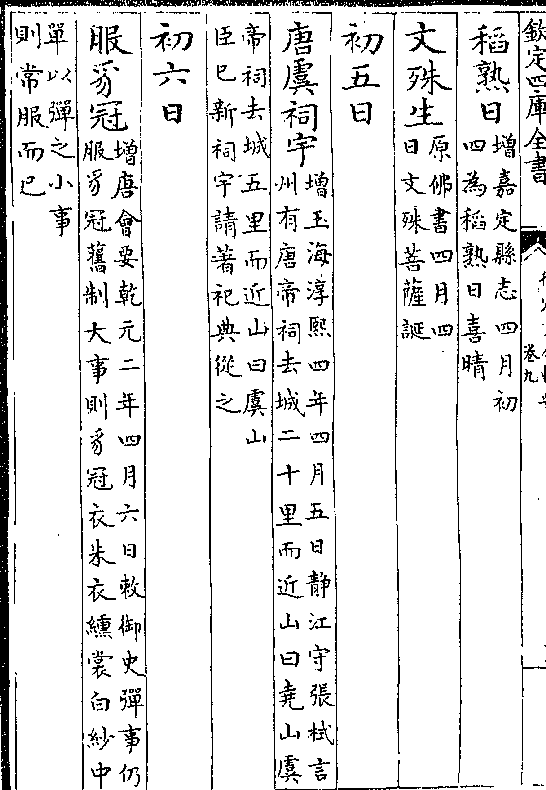 欽定四庫全書
卷九
稻熟日
增嘉定縣志四月初
四為稻熟日喜晴
文殊生
原佛書四月四
日文殊菩薩誕
初五日
唐虞祠宇
增玉海淳熙四年四月五日静江守張栻言
州有唐帝祠去城二十里而近山曰堯山虞
帝祠去城五里而近山曰虞山
臣已新祠宇請著祀典從之
初六日
服豸冠
增唐會要乾元二年四月六日敕御史彈事仍
服豸冠舊制大事則豸冠衣朱衣纁裳白紗中
單以彈之小事
則常服而已